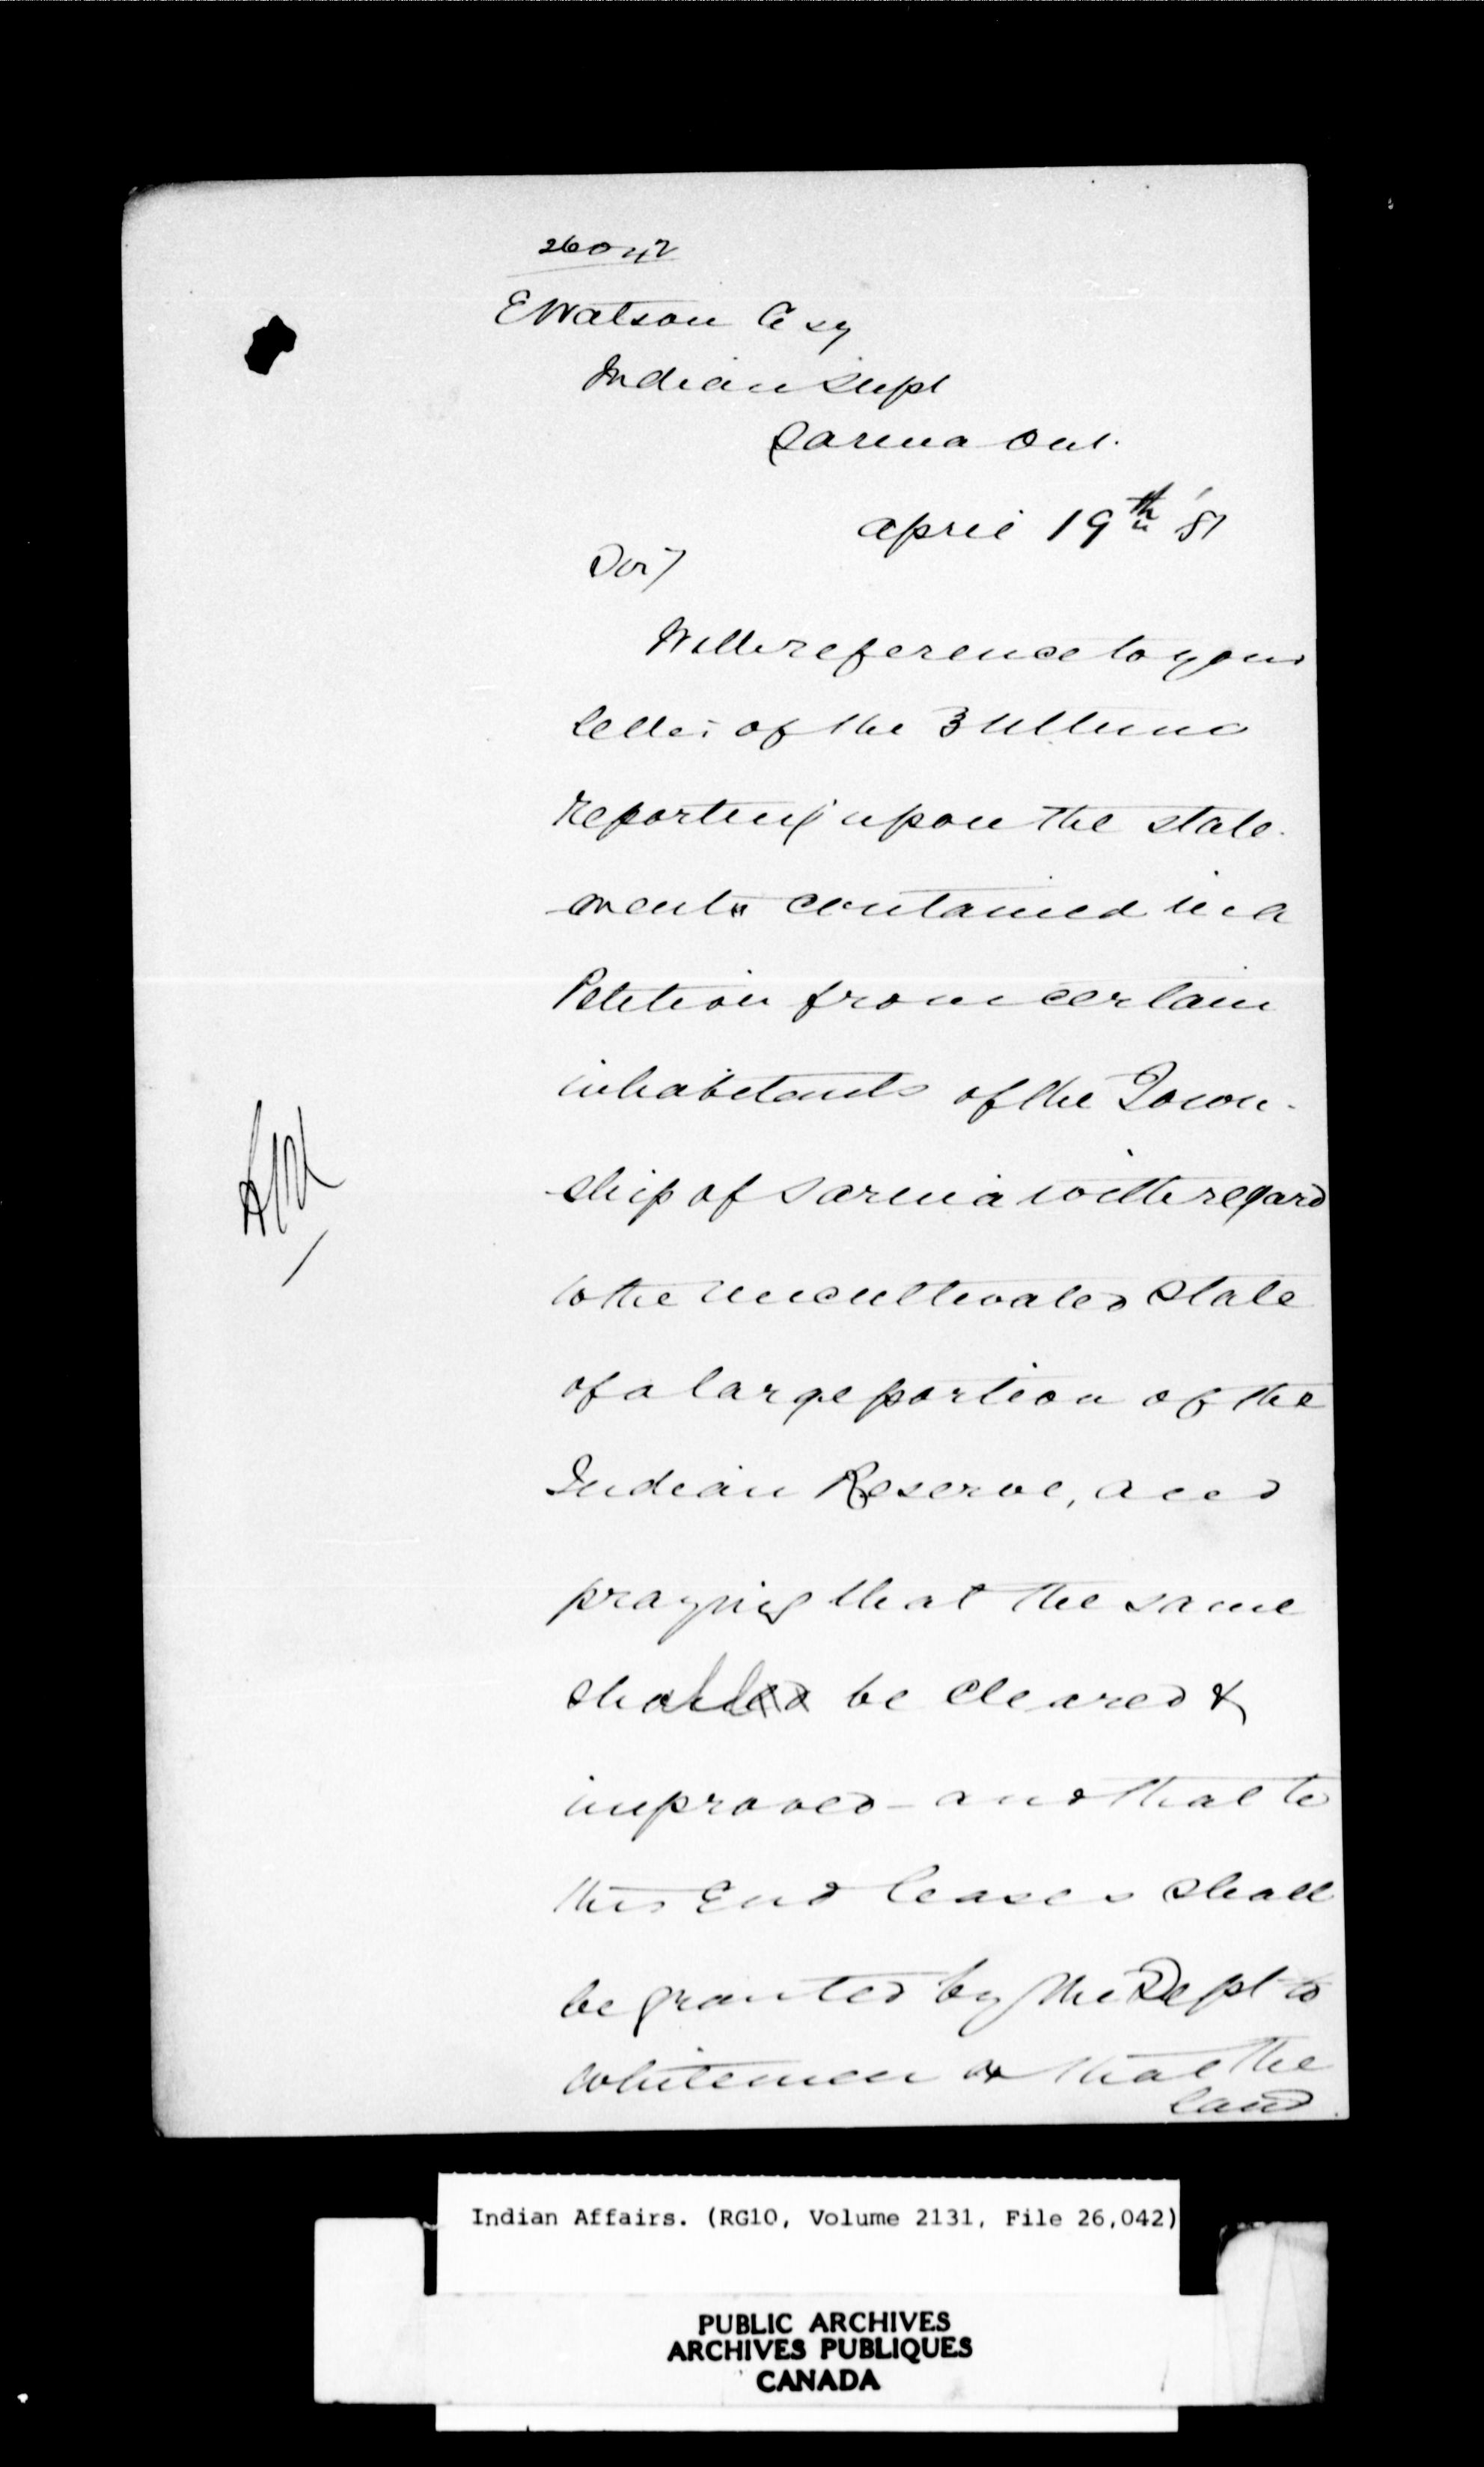 26042
E Watson Esq
Indian Supt
Sarnia Ont.
April 19th '81
Sir,
With reference to your
letter of the 3 Ultimo
reporting upon the state-
ments contained in a
Petition from certain
inhabitants of the Town-
ship of Sarnia with regard
to the uncultivated state
of a large portion of the
Indian Reserve, and
praying that the same
shall be cleared &
improved - and that to
this End leases shall
be granted by the Dept to
whitemen & that the
land
Indian Affairs. (RG10, Volume 2131, File 26,042)
PUBLIC ARCHIVES
ARCHIVES PUBLIQUES
CANADA